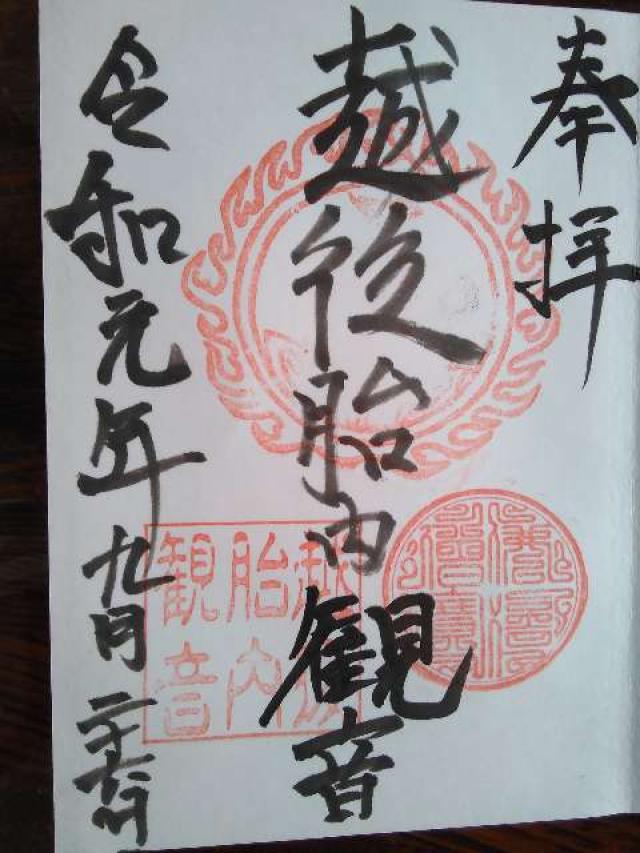 奉拝
越後胎内観音
令和元年九月二十六日
越後
胎内
観音